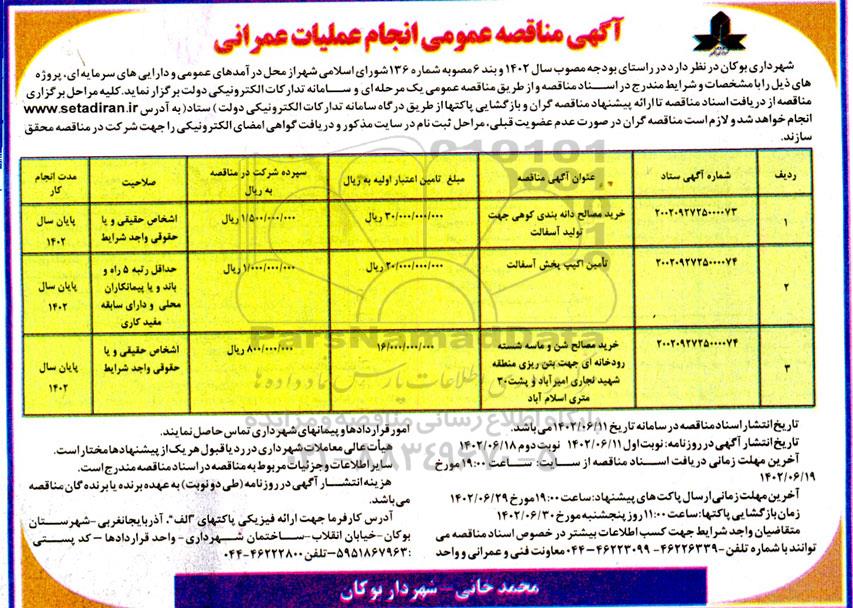 آگهی مناقصه عمومی انجام عملیات عمرانی
شهرداری بوکان در نظر دارد در راستای بودجه مصوب سال ۱۴۰۲ و بند ۶ مصوبه شماره ۱۳۶ شورای اسلامی شهر از محل درآمدهای عمومی و دارایی های سرمایه ای، پروژه
های ذیل را با مشخصات و شرایط مندرج در اسناد مناقصه و از طریق مناقصه عمومی یک مرحله ای و سامانه تدارکات الکترونیکی دولت برگزار نماید. کلیه مراحل برگزاری
مناقصه از دریافت اسناد مناقصه تا ارائه پیشنهاد مناقصه گران و بازگشایی پاکتها از طریق درگاه سامانه تدارکات الکترونیکی دولت ) ستاد( به آدرس www.setadiran.ir
انجام خواهد شد و لازم است مناقصه گران در صورت عدم عضویت قبلی، مراحل ثبت نام در سایت مذکور و دریافت گواهی امضای الکترونیکی را جهت شرکت در مناقصه محقق
سازند.
ردیف شماره آگهی ستاد عنوان آگهی مناقصه مبلغ تامین اعتبار اولیه به ریال سپرده شرکت در مناقصه به ریال صلاحیت مدت انجام کار
۱ ۲۰۰۲۰۹۲۷۲۵۰۰۰۰۷۳ خرید مصالح دانه بندی کوهی جهت تولید آسفالت ۳۰/۰۰۰/۰۰۰/۰۰۰ ریال ۱/۵۰۰/۰۰۰/۰۰۰ ریال اشخاص حقیقی و یا حقوقی واجد شرایط پایان سال ۱۴۰۲
۲ ۲۰۰۲۰۹۲۷۲۵۰۰۰۰۷۴ تأمین اکیپ پخش آسفالت ۲۰/۰۰۰/۰۰۰/۰۰۰ ریال ۱/۰۰۰/۰۰۰/۰۰۰ ریال حداقل رتبه ۵ راه و باند و یا پیمانکاران محلی و دارای سابقه مفید کاری پایان سال ۱۴۰۲
۳ ۲۰۰۲۰۹۲۷۲۵۰۰۰۰۷۴ خرید مصالح شن و ماسه شسته رودخانه ای جهت بتن ریزی منطقه شهید نجاری امیرآباد و پشت ۳۰ متری اسلام آباد ۱۶/۰۰۰/۰۰۰/۰۰۰ ۸۰۰/۰۰۰/۰۰۰ ریال اشخاص حقیقی و یا حقوقی واجد شرایط پایان سال ۱۴۰۲
ParsNamadData
پایگاه اطلاع رسانی مناقصه و مزایده
تاریخ انتشار اسناد مناقصه در سامانه تاریخ ۱۴۰۲/۰۶/۱۱ می باشد.
تاریخ انتشار آگهی در روزنامه: نوبت اول ۱۴۰۲/۰۶/۱۱ نوبت دوم ۱۴۰۲/۰۶/۱۸
آخرین مهلت زمانی دریافت اسناد مناقصه از سایت: ساعت ۱۹:۰۰ مورخ
۱۴۰۲/۰۶/۱۹
آخرین مهلت زمانی ارسال پاکت های پیشنهاد: ساعت ۱۹:۰۰ مورخ ۱۴۰۲/۰۶/۲۹
زمان بازگشایی پاکتها: ساعت ۱۱:۰۰ روز پنجشنبه مورخ ۱۴۰۲/۰۶/۳۰
متقاضیان واجد شرایط جهت کسب اطلاعات بیشتر در خصوص اسناد مناقصه می
توانند با شماره تلفن ۰۴۴-۴۶۲۲۳۰۹۹ - ۴۶۲۲۶۳۳۹ معاونت فنی و عمرانی و واحد
امور قراردادها و پیمانهای شهرداری تماس حاصل نمایند.
هیأت عالی معاملات شهرداری در رد یا قبول هر یک از پیشنهادها مختار است.
سایر اطلاعات و جزئیات مربوط به مناقصه در اسناد مناقصه مندرج است.
هزینه انتشار آگهی در روزنامه (طی دو نوبت) به عهده برنده یا برنده گان مناقصه
می باشد.
آدرس کارفرما جهت ارائه فیزیکی پاکتهای "الف"، آذربایجانغربی - شهرستان
بوکان - خیابان انقلاب - ساختمان شهرداری - واحد قراردادها – کد پستی
: ۵۹۵۱۸۶۷۹۶۳ – تلفن ۰۴۴-۴۶۲۲۲۸۰۰
محمد خانی – شهردار بوکان